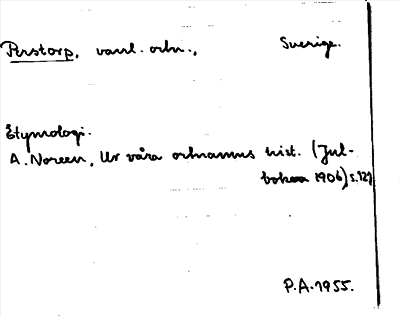 Perstorp, vanl. ortn., Sverige.
Etymologi.
A. Noreen, Ur våra ortnamns hist. (Jul-
boken 1906), s. 127
P.A. 1955.